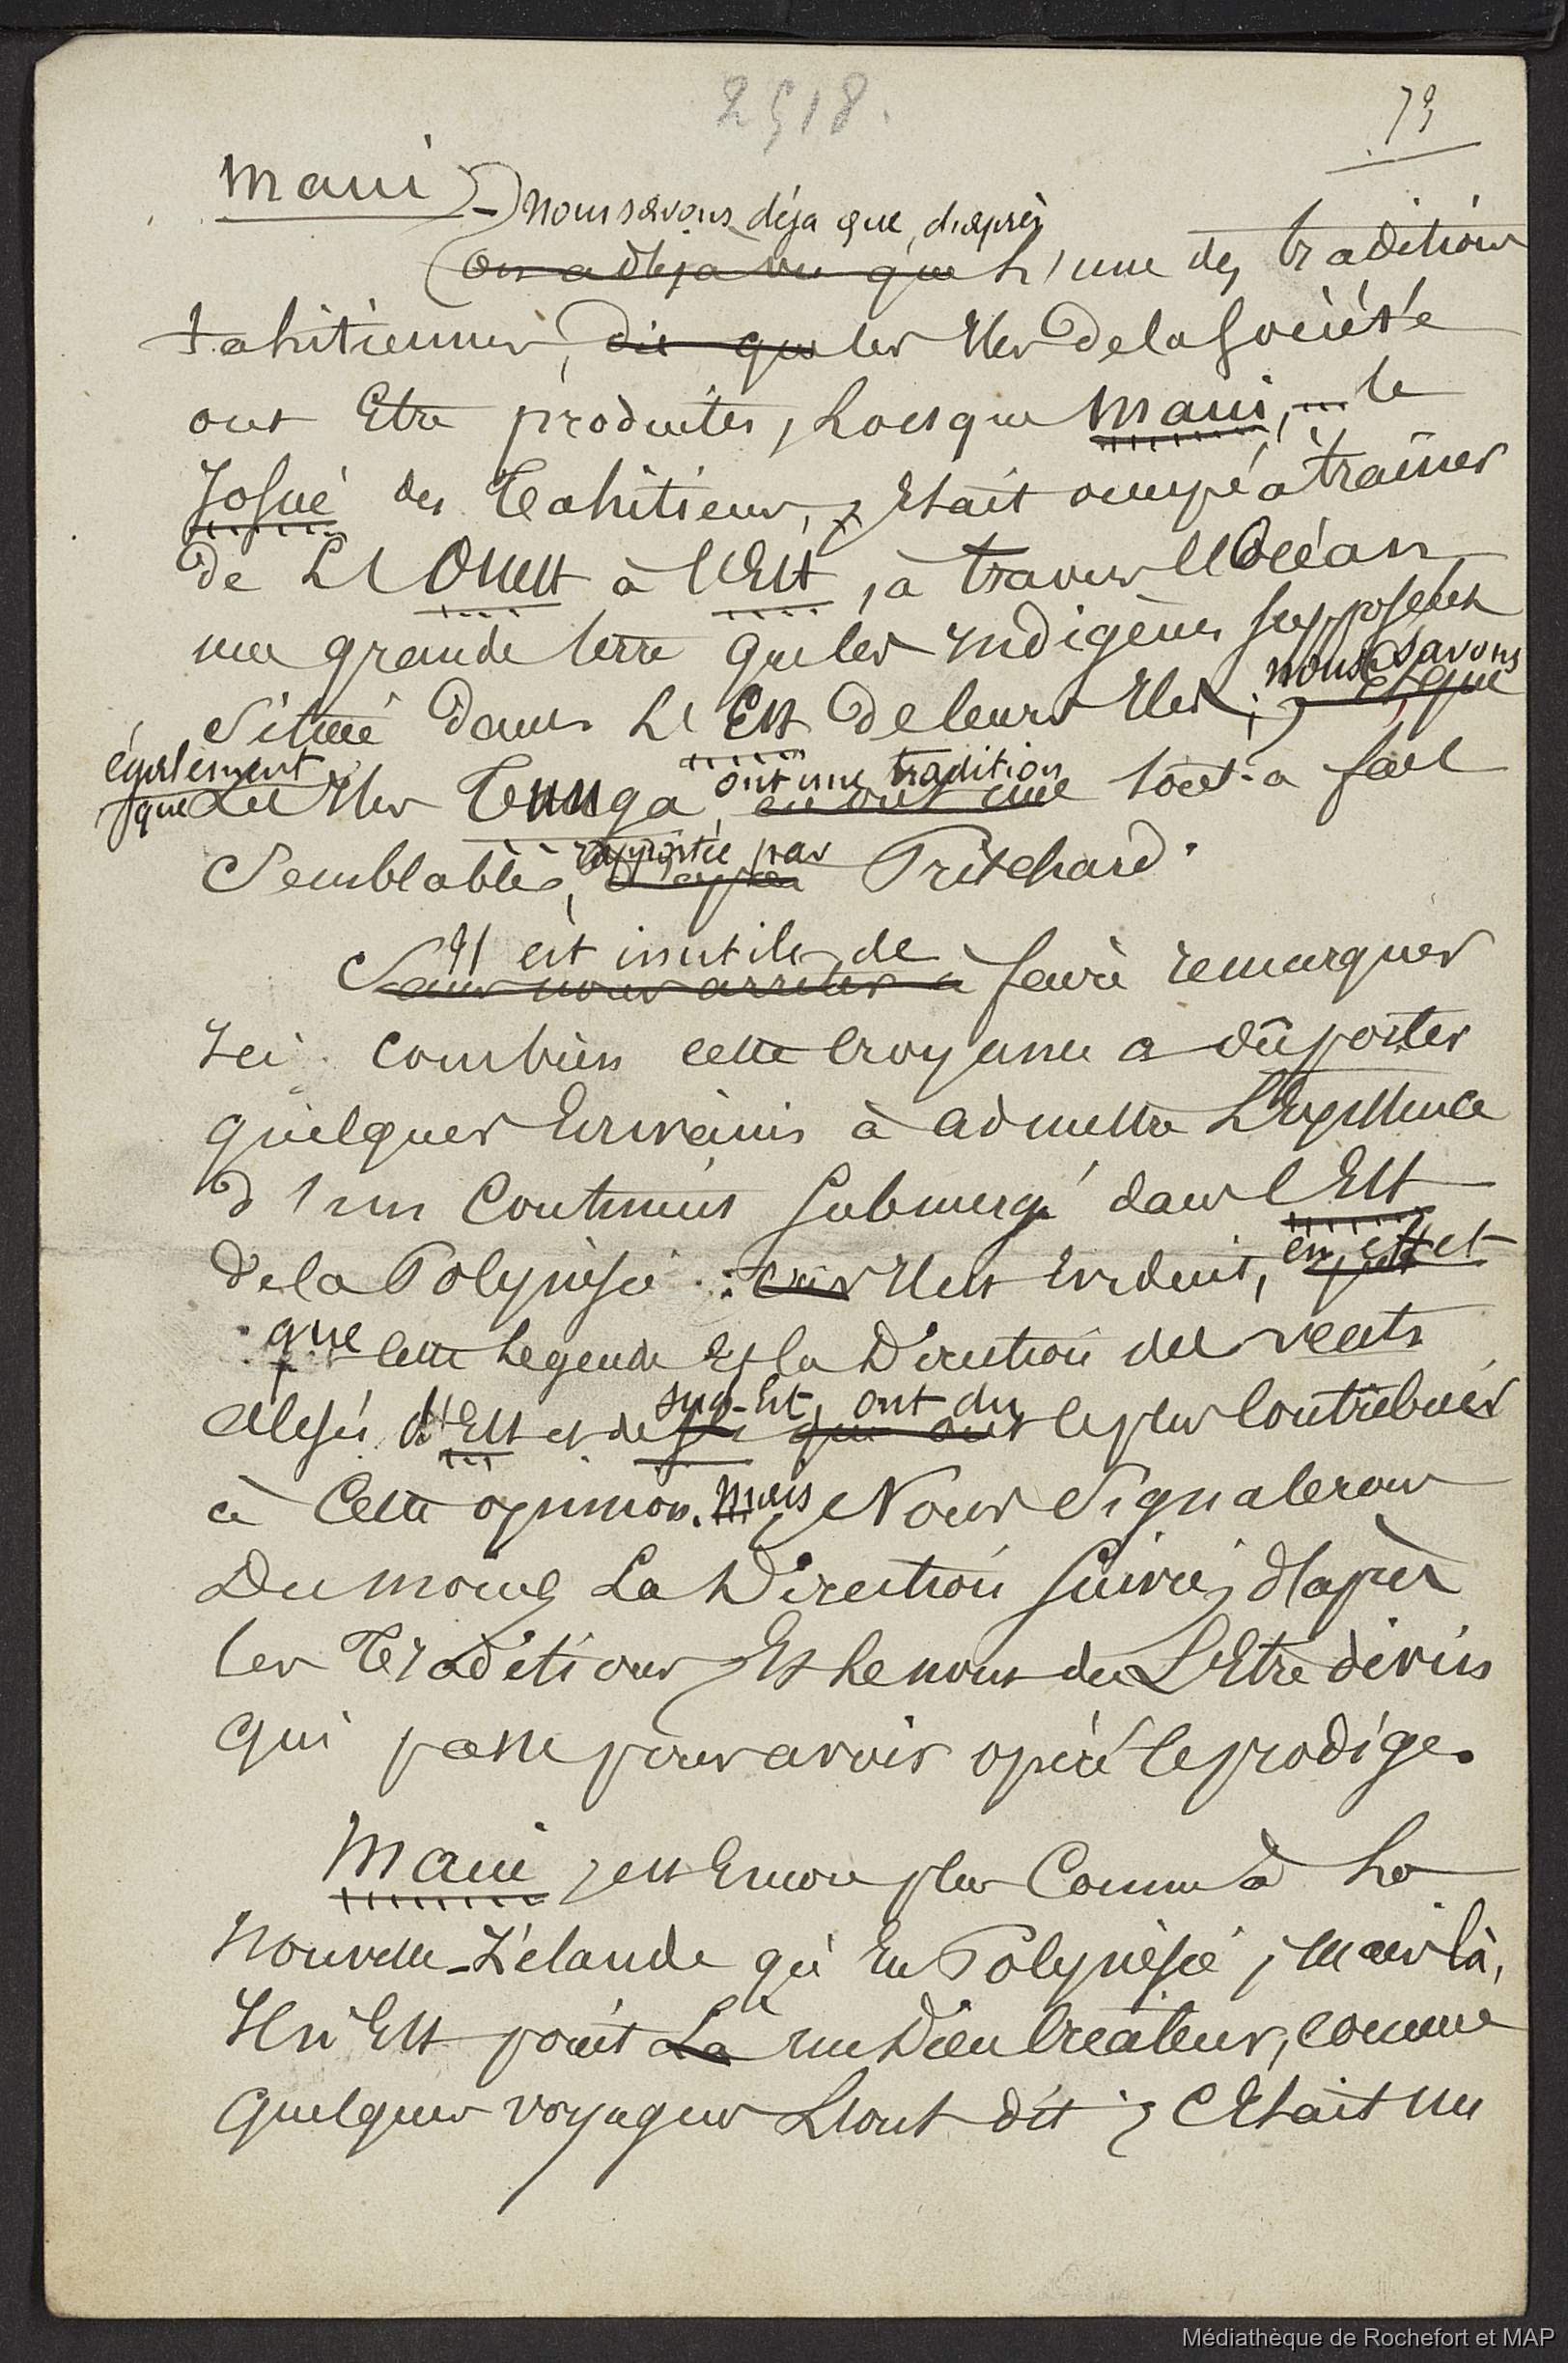 2518.
79
Maui -) nous savons déja que, d'après
(on a déja vu que L'une des traditions
tahitiennes, dit que les Iles de la Société
ont Etre produites, Lorsque Maui, ... le
Josué des Tahitiens, Etait occupé à traîner
de L'Ouest à l'Est, à travers l'Océan
une grande terre que les Indigènes supposaient
Située dans L'Est de leurs Iles ; nous savons
et que
également
que Les Iles Tunga ont une tradition
en ont une tout-à fait
Semblable, rapportée par
d'après Pritchard.
Il est inutile de
Sans nous arrêter à faire remarquer
Ici combien cette croyance a dû porter
quelques Ecrivains à admettre L'Existence
d'un Continent Submergé dans l'Est
de la Polynésie : car Il est Evident, en effet
que cette Legende Et la Direction des vents
alisés d'Est et de Sud-Est, ont du
qui ont le plus contribuer
à Cette opinion. Mais, Nous Signalerons
Du moins La Direction Suivie, d'après
les Traditions Et le nom de L'Etre divin
qui passe pour avoir opéré le prodige.
Maui, est Encore plus Connu à La
Nouvelle-Zélande qu'En Polynésie ; mais là,
Il n'Est point La un Dieu Créateur, comme
Quelques voyageurs L'ont dit ; C'Etait un
Médiathèque de Rochefort et MAP